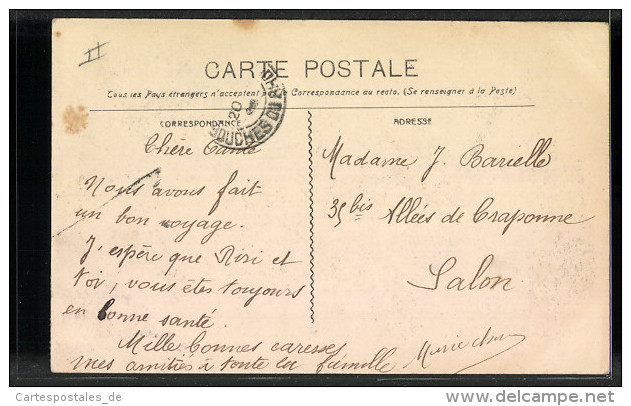 II
CARTE POSTALE
Tous les Pays étrangers n'acceptent pas la Correspondance au recto. (Se renseigner à la Poste)
CORRESPONDANCE
Chère Tante
Nous avons fait
un bon voyage.
J'espère que Riri et
toi, vous êtes toujours
en bonne santé.
Mille bonnes caresses
mes amitiés à toute la famille
Marie
ADRESSE
Madame J. Barielle
35 bis Allées de Craponne
Salon
20
BOUCHES DU RHÔ
Cartespostales_de
www.delcampe.net